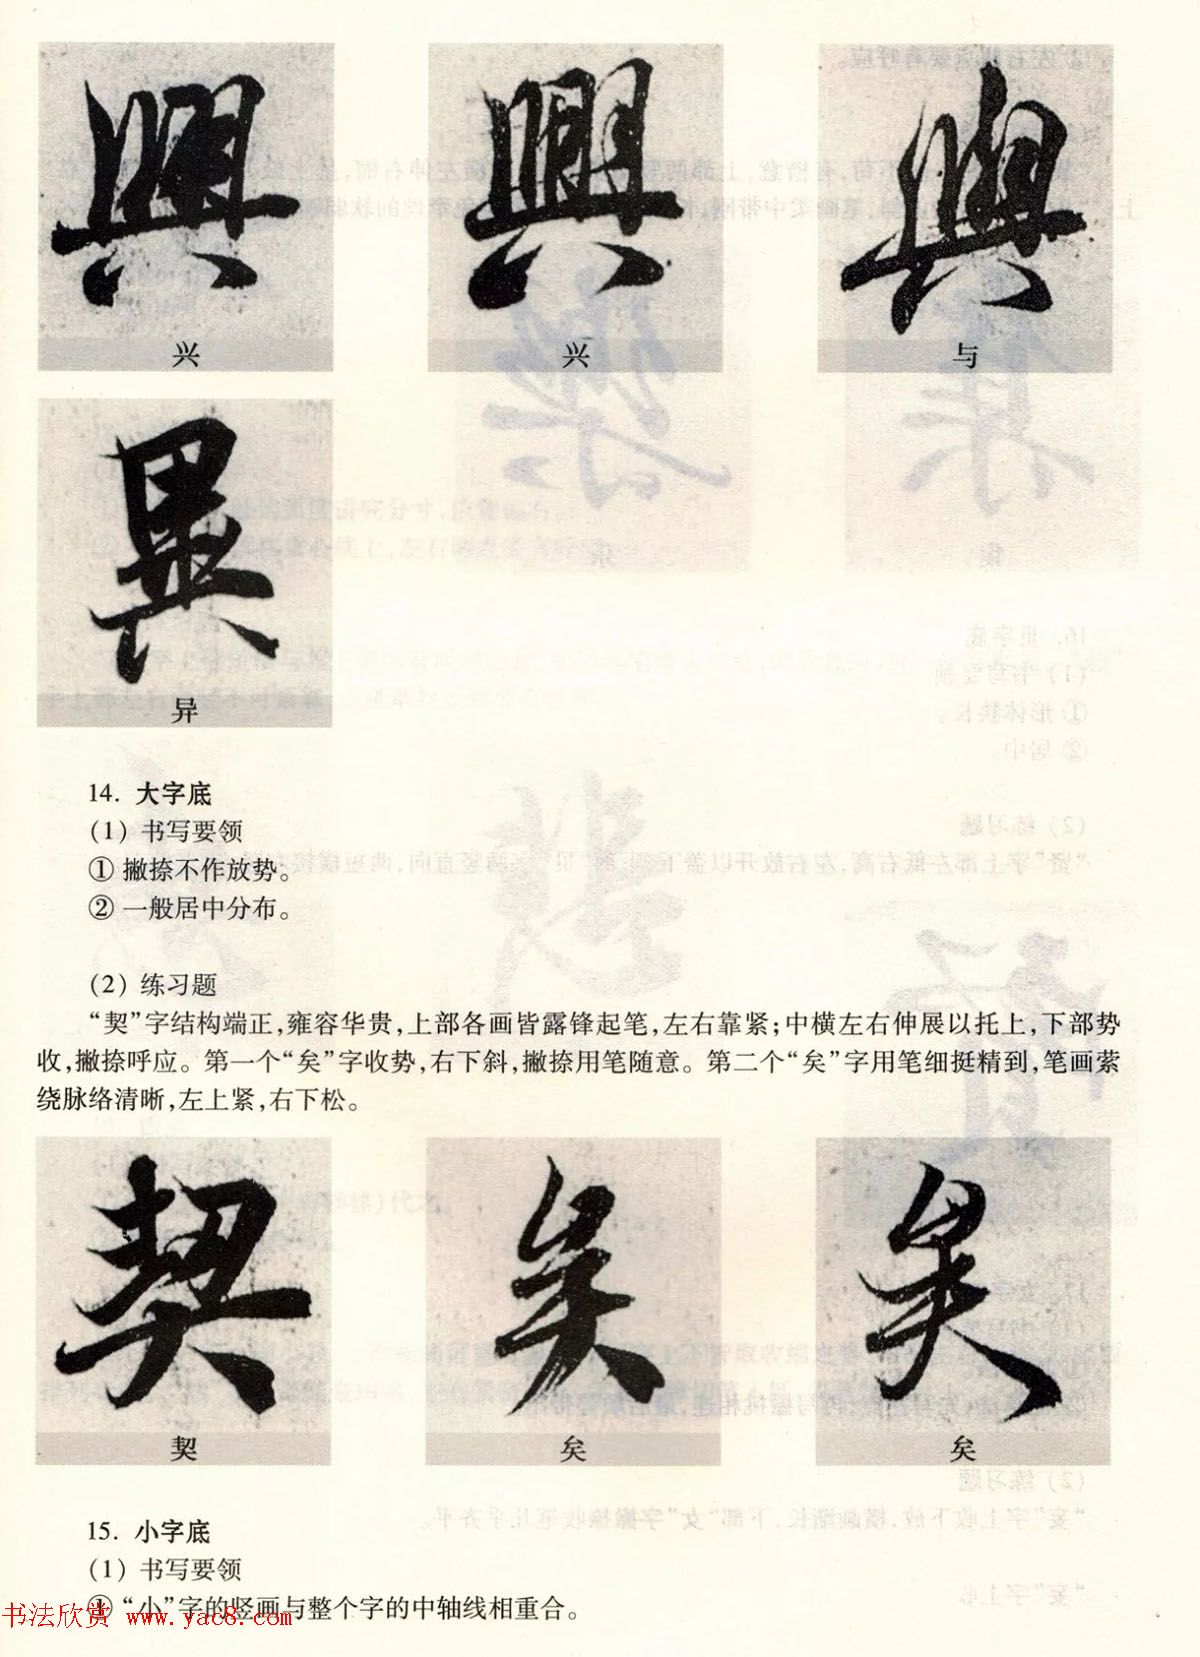 興 興 與
兴 兴 与
異
异
14. 大字底
(1) 书写要领
① 撇捺不作放势。
② 一般居中分布。
(2) 练习题
“契”字结构端正,雍容华贵,上部各画皆露锋起笔,左右靠紧;中横左右伸展以托上,下部势
收,撇捺呼应。第一个“矣”字收势,右下斜,撇捺用笔随意。第二个“矣”字用笔细挺精到,笔画萦
绕脉络清晰,左上紧,右下松。
契 矣 矣
契 矣 矣
15. 小字底
(1) 书写要领
① “小”字的竖画与整个字的中轴线相重合。
书法欣赏 www.yac8.com